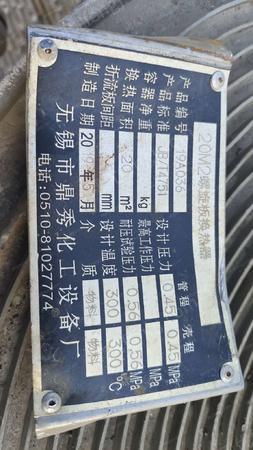 20M2螺旋板换热器
产品编号 管程 壳程
产品标准 JB/T4751 设计压力 0.45 0.45 MPa
容器净重 kg 最高工作压力 MPa
换热面积 20 m² 耐压试验压力 0.56 0.56 MPa
折流板间距 mm 设计温度 300 300 ℃
制造日期 20 年 月 介质 物料 物料
无锡市鼎秀化工设备厂
电话:0510-81027774